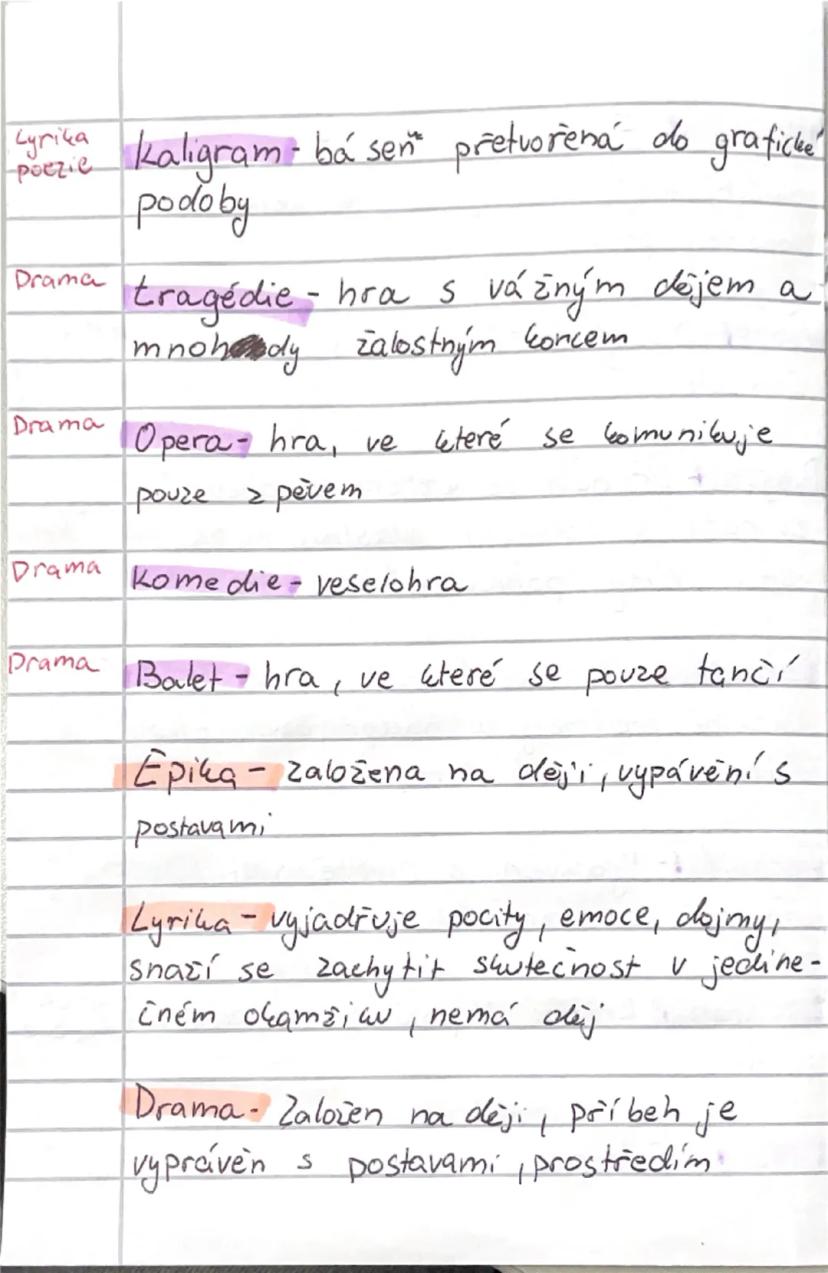 Lyrika
poezie
Kaligram - báseň přetvořená do grafické
podoby
Drama
tragédie - hra s vážným dějem a
mnohdy žalostným koncem
Drama
Opera - hra, ve které se komunikuje
pouze zpěvem
Drama
Komedie - veselohra
Drama
Balet - hra, ve které se pouze tančí
Epika - založena na ději, vypávění s
postavami
Lyrika - vyjadřuje pocity, emoce, dojmy,
snaží se zachytit skutečnost v jedine-
čném okamžiku, nemá děj
Drama - Založen na ději, příbeh je
vyprávěn s postavami, prostředím